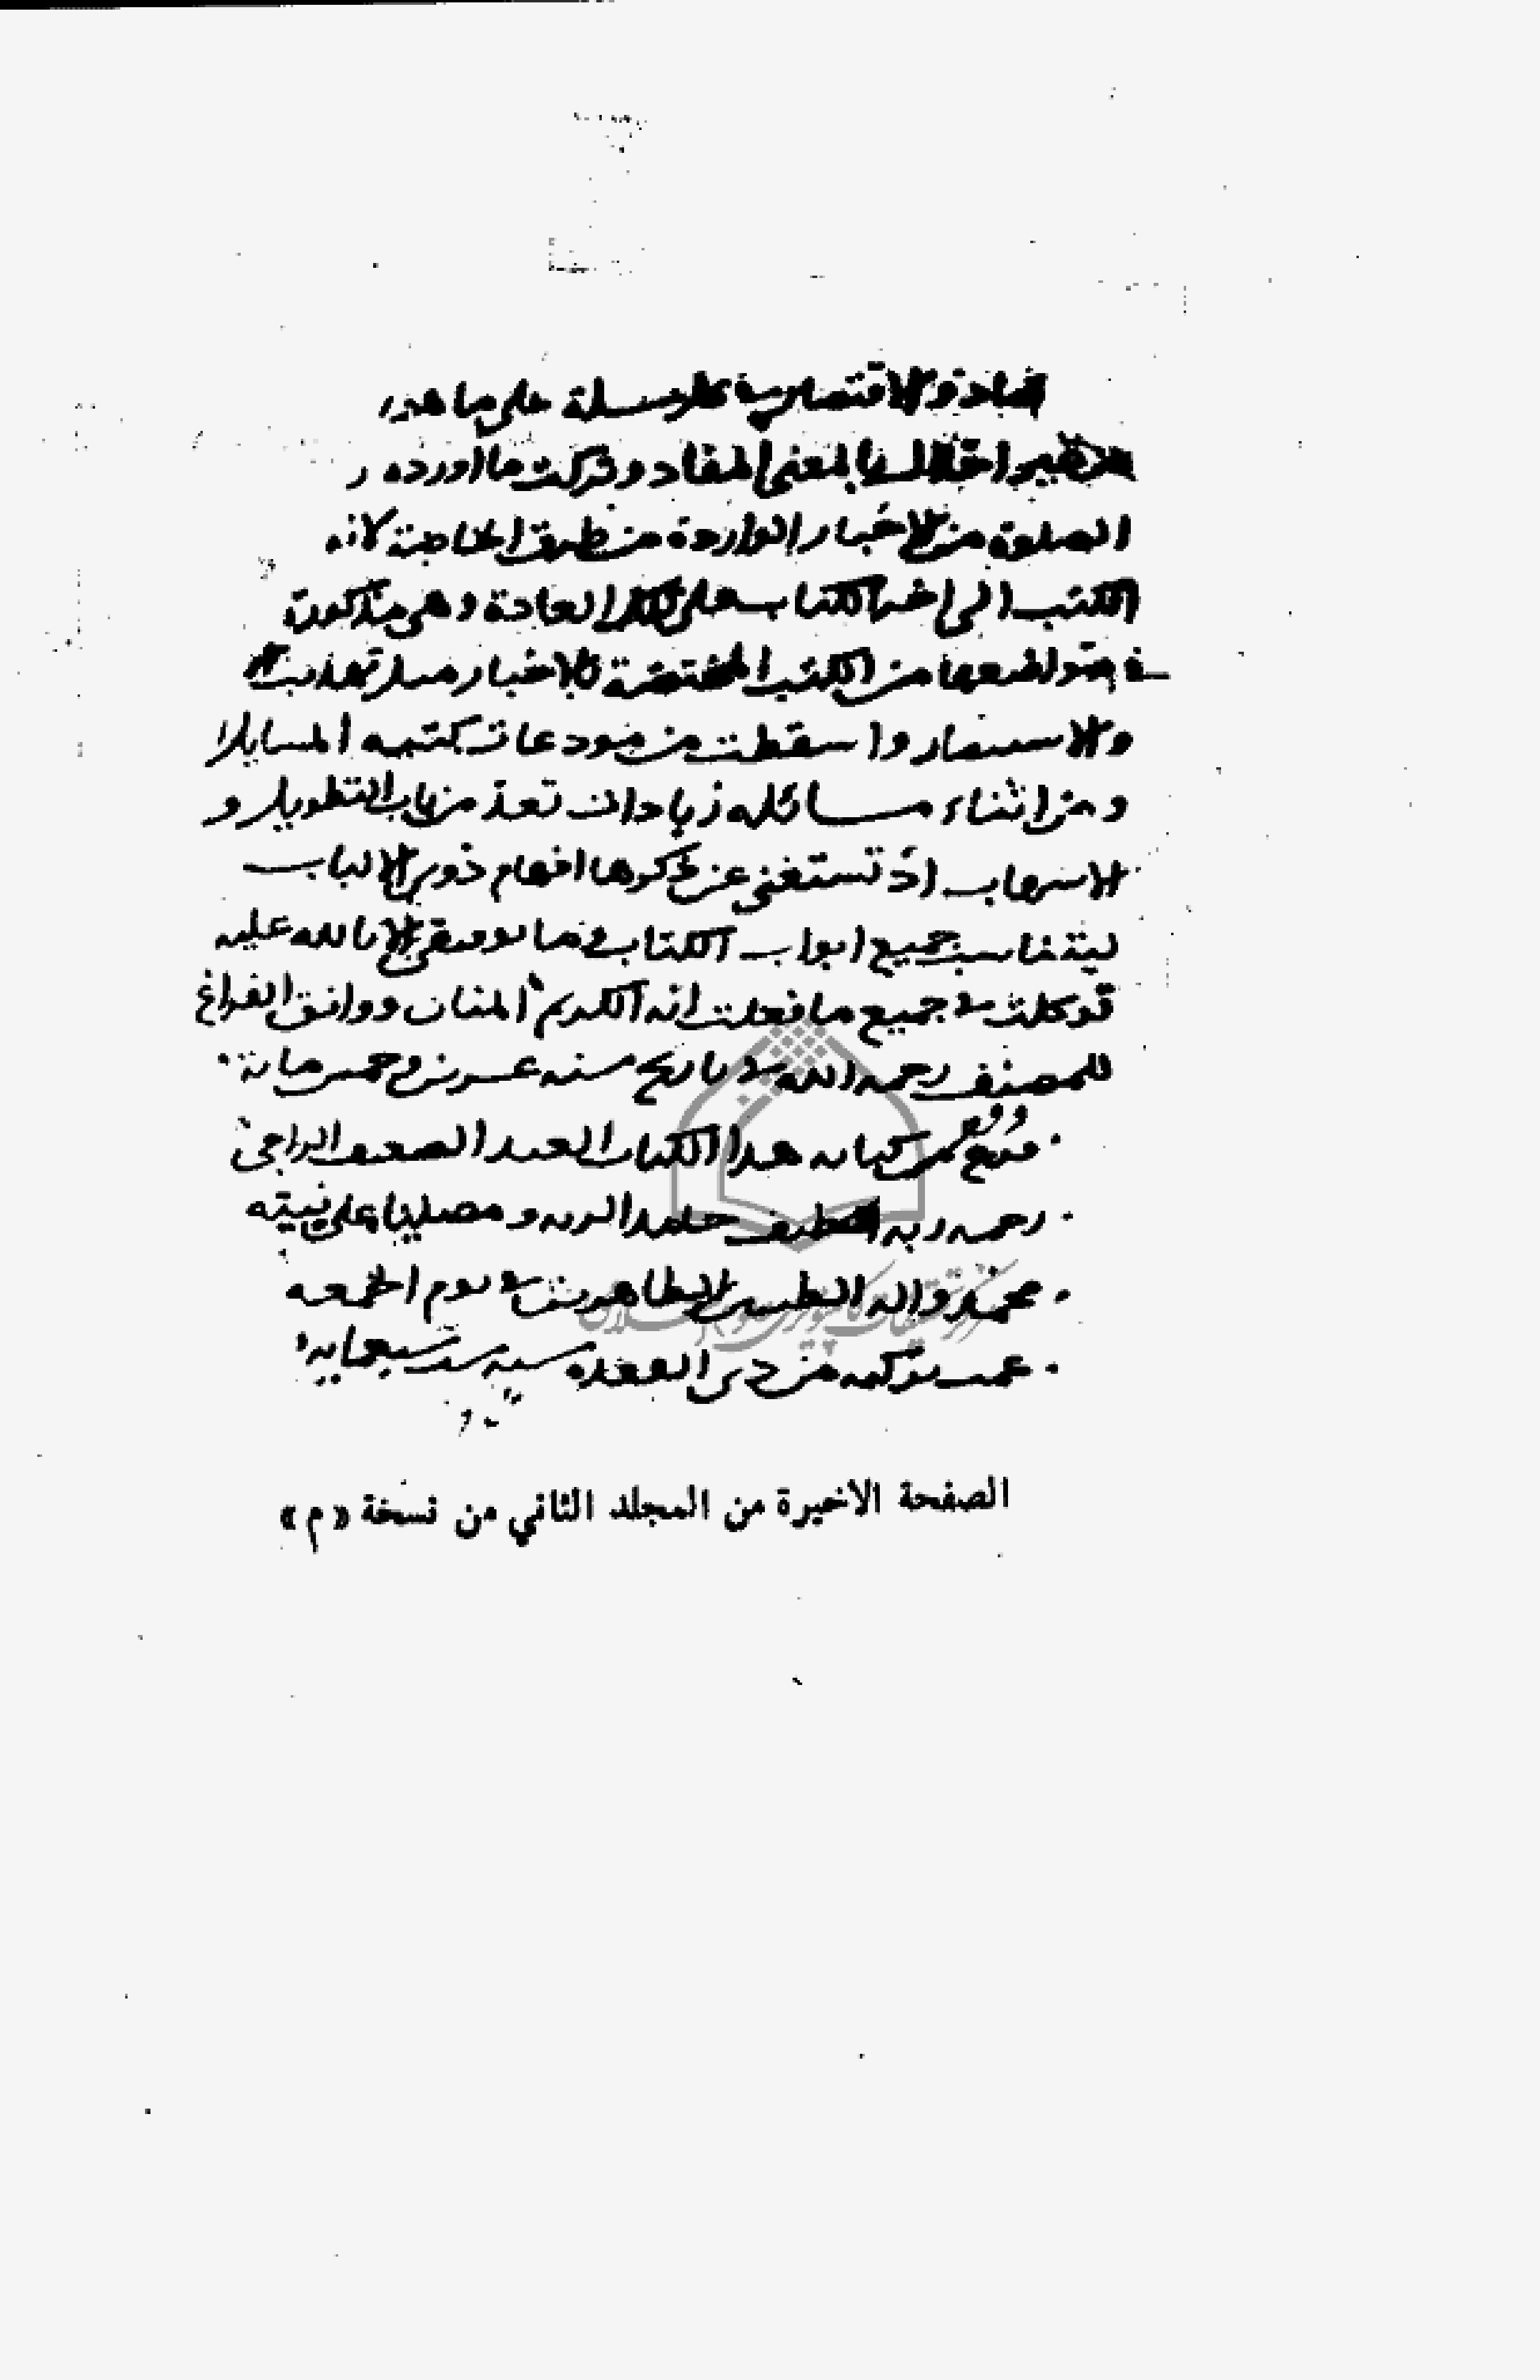 والاقتصار في كل مسئلة على ما هو
اخلال بالمعنى المفاد وتركت ما اورده
الصلوة من الاخبار الواردة من طرق الخاصة لانه
الكتب الى اخر الكتاب على العادة وهي مذكورة
في مواضعها من الكتب المختصة بالاخبار مثل تهذيب
والاستبصار واسقطت من مودعات كتبه المسايل
ومن اثناء مسائله زيادات تعد من باب التطويل و
الاسهاب اذ تستغنى عن ذكرها افهام ذوي الالباب
ليتناسب جميع ابواب الكتاب وما توفيقي الا بالله عليه
توكلت في جميع ما فعلت انه الكريم المنان ووافق الفراغ
للمصنف رحمه الله في تاريخ سنه عسرين وخمس ماىة
ووقع
من كتابه هذا الكتاب العبد الضعيف الراجي
رحمه ربه اللطيف حامدا لربه ومصليا على نبيته
محمد واله الطيبين الطاهرين في يوم الجمعه
من ذي القعده سنه سبعمايه
الصفحة الاخيرة من المجلد الثاني من نسخة «م»